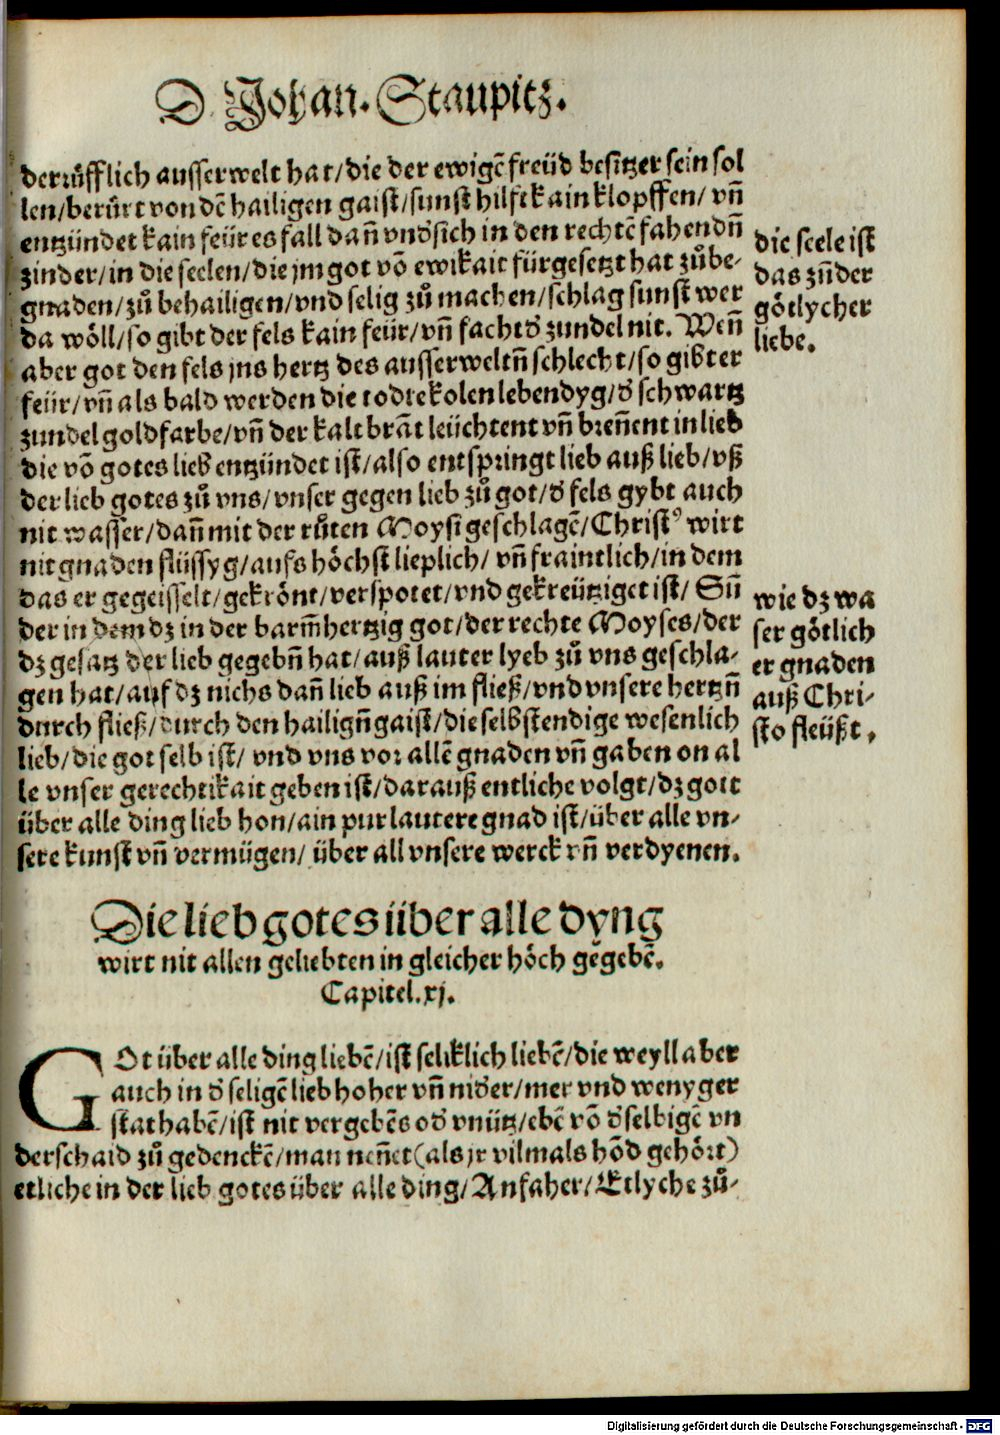 D. Johan. Staupitz.
derůfflich ausserwelt hat/die der ewigē freüd besitzer sein sol
len/berůrt von dē hailigen gaist/sunst hilft kain klopffen/ vn̄
entzündet kain feür es fall dan̄ vnd̕ sich in den rechtē fahendn̄
zinder/in die seelen/die jm got vō ewikait fürgesetzt hat zůbe-
gnaden/zů behailigen/vnd selig zů machen/schlag sunst wer
da wöll/so gibt der fels kain feür/vn̄ facht d̕ zundel nit. Wen̄
aber got den fels jns hertz des ausserweltn̄ schlecht/so gibt er
feür/vn̄ als bald werden die todte kolen lebendyg/d̕ schwartz
zundel goldfarbe/vn̄ der kalt brāt leüchtent vn̄ bren̄ent in lieb
die vō gotes lieb entzündet ist/also entspringt lieb auß lieb/vß
der lieb gotes zů vns/vnser gegen lieb zů got/d̕ fels gybt auch
nit wasser/dan̄ mit der růten Moysi geschlagē/Christꝰ wirt
nit gnaden flüssyg/aufs höchst lieplich/ vn̄ fraintlich/in dem
das er gegeisselt/gekrönt/verspotet/vnd gekreütziget ist/ Sun̄
der in dem dz in der barm̄hertzig got/der rechte Moyses/der
dz gesatz der lieb gegebn̄ hat/auß lauter lyeb zů vns geschla-
gen hat/auf dz nichs dan̄ lieb auß im fließ/vnd vnsere hertzn̄
durch fließ/durch den hailign̄ gaist/die selbstendige wesenlich
lieb/die got selb ist/ vnd vns vor allē gnaden vn̄ gaben on al
le vnser gerechtikait geben ist/darauß entliche volgt/dz gott
über alle ding lieb hon/ain pur lautere gnad ist/über alle vn-
sere kunst vn̄ vermügen/ über all vnsere werck vn̄ verdyenen.
die seele ist
das zun̄der
götlycher
liebe.
wie dz wa
ser götlich
er gnaden
auß Chri-
sto fleüßt.
Die lieb gotes über alle dyng
wirt nit allen geliebten in gleicher höch gegebē.
Capitel.xj.
GOt über alle ding liebē/ist seliklich liebē/die weyll aber
auch in d̕ seligē lieb hoher vn̄ nid̕er/mer vnd wenyger
stat habē/ist nit vergebēs od̕ vnütz/ebē vō d̕selbigē vn
derschaid zů gedenckē/man nen̄et(als jr vilmals hōd gehört)
etliche in der lieb gotes über alle ding/Anfaher/Etlyche zů-
Digitalisierung gefördert durch die Deutsche Forschungsgemeinschaft - DFG